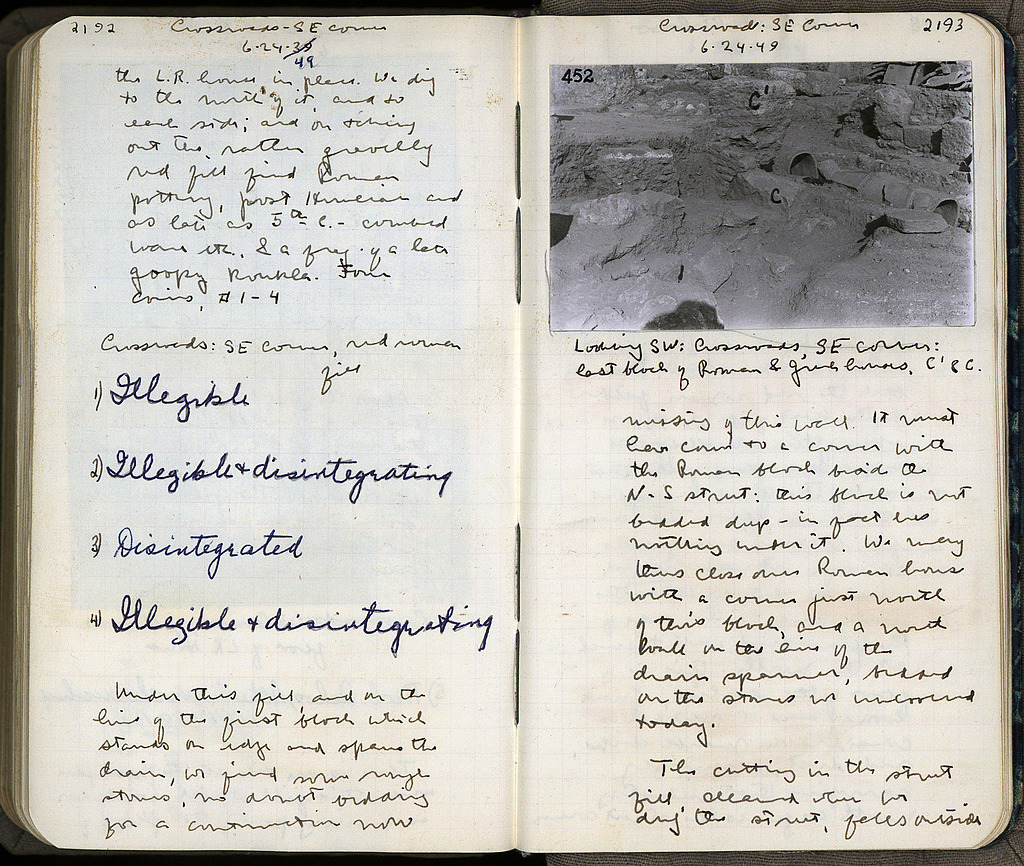 2192
Crossroads-SE corner
6-24-39
49
the L.R. house in place. We dig
to the north of it, and to
each side; and on
out the rather gravelly
red fill find Roman
pottery, post Herulian and
as late as 5th c. - combed
ware etc. & a frag. of a late
goopy Roukla. Four
coins, #1-4
Crossroads: SE corner, red roman
fill
1) Illegible
2) Illegible + disintegrating
3) Disintegrated
4) Illegible + disintegrating
Under this fill, and on the
line of the first block which
stands on edge and spans the
drain, we find some rough
stones, no doubt bedding
for a continuation now
Crossroads: SE Corner
2193
6-24-49
452
C'
C
Looking SW: Crossroads, SE corner:
last block of Roman & Greek houses, C' & C.
missing of this wall. It must
have come to a corner with
the Roman block beside the
N-S street: this block is not
bedded deep - in fact has
nothing under it. We may
thus close our Roman house
with a corner just north
of this block, and a north
wall on the line of the
drain spanner, bedded
on the stones we uncovered
today.
The cutting in the street
fill, cleared when we
dug the street, falls outside